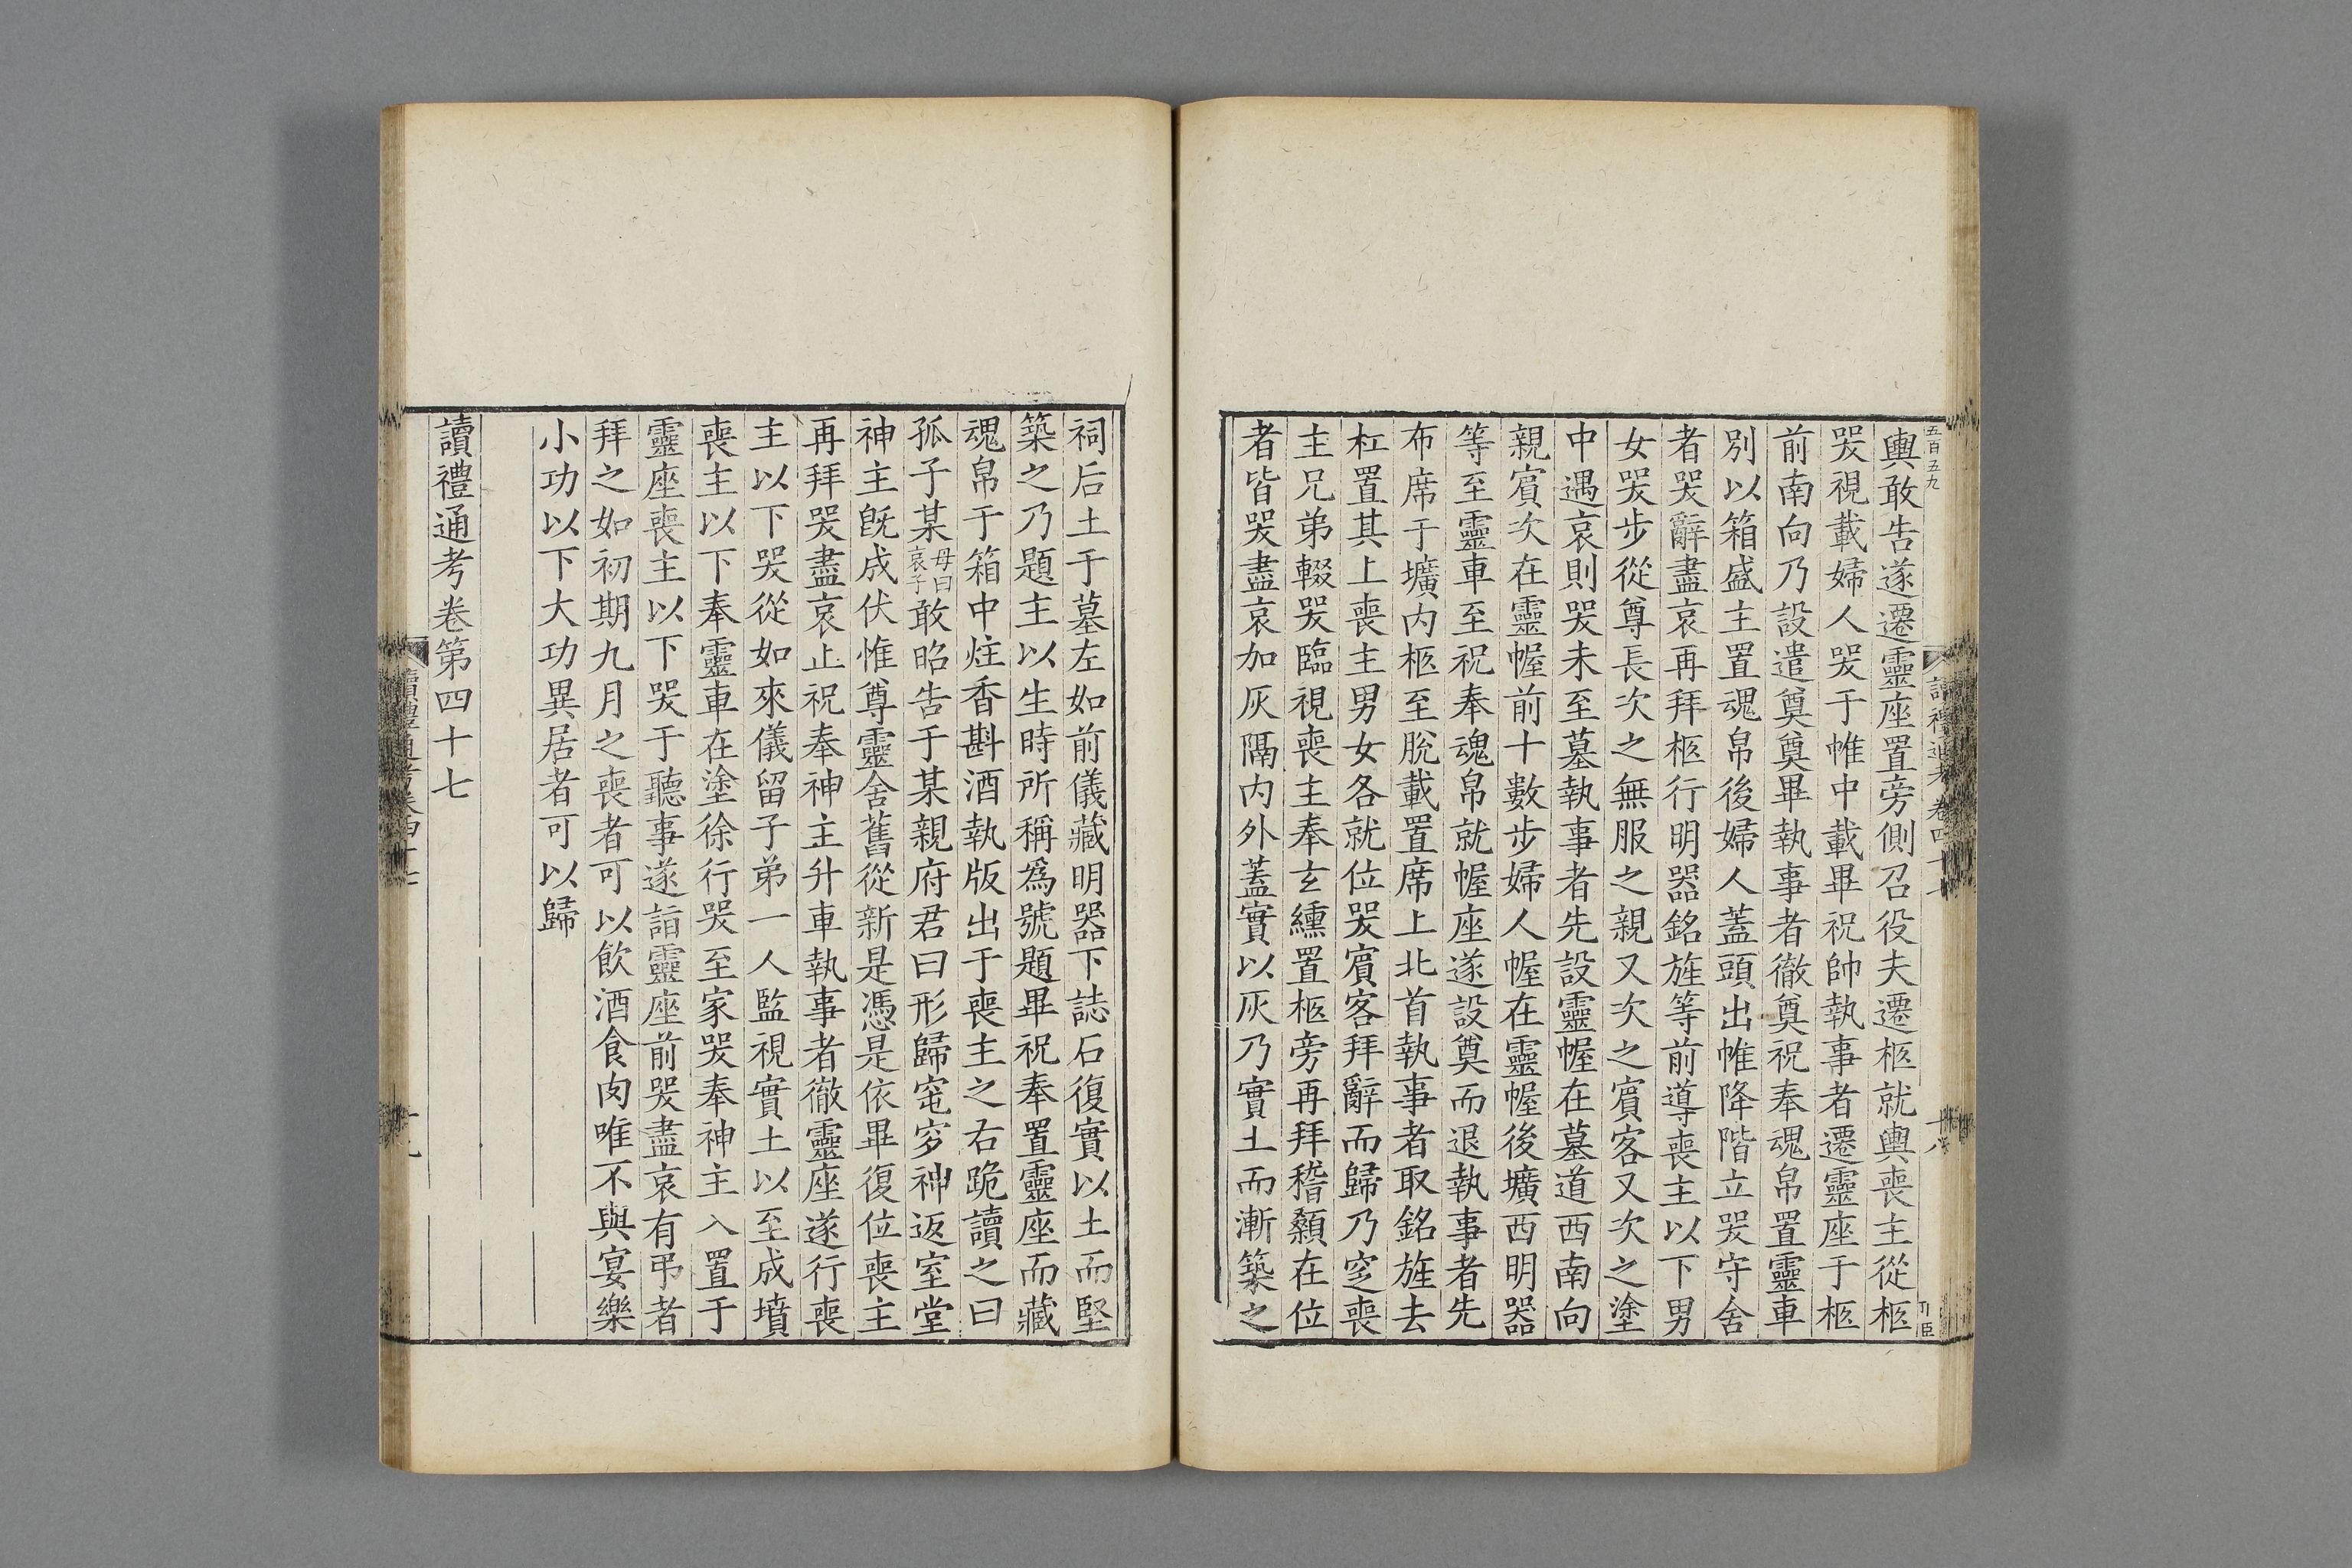 五百五九
輿敢告遂遷靈座置旁側召役夫遷柩就輿喪主從柩
哭視載婦人哭于帷中載畢祝帥執事者遷靈座于柩
前南向乃設遣奠奠畢執事者徹奠祝奉魂帛置靈車
別以箱盛主置魂帛後婦人蓋頭出帷降階立哭守舍
者哭辭盡哀再拜柩行明器銘旌等前導喪主以下男
女哭步從尊長次之無服之親又次之賓客又次之塗
中遇哀則哭未至墓執事者先設靈幄在墓道西南向
親賓次在靈幄前十數步婦人幄在靈幄後壙西明器
等至靈車至祝奉魂帛就幄座遂設奠而退執事者先
布席于壙内柩至脫載置席上北首執事者取銘旌去
杠置其上喪主男女各就位哭賓客拜辭而歸乃窆喪
主兄弟輟哭臨視喪主奉玄纁置柩旁再拜稽顙在位
者皆哭盡哀加灰隔内外蓋實以灰乃實土而漸築之
祠后土于墓左如前儀藏明器下誌石復實以土而堅
築之乃題主以生時所稱爲號題畢祝奉置靈座而藏
魂帛于箱中炷香斟酒執版出于喪主之右跪讀之曰
孤子某母曰哀子敢昭告于某親府君曰形歸窀穸神返室堂
神主旣成伏惟尊靈舍舊從新是憑是依畢復位喪主
再拜哭盡哀止祝奉神主升車執事者徹靈座遂行喪
主以下哭從如來儀留子弟一人監視實土以至成墳
喪主以下奉靈車在塗徐行哭至家哭奉神主入置于
靈座喪主以下哭于聽事遂詣靈座前哭盡哀有弔者
拜之如初期九月之喪者可以飲酒食肉唯不與宴樂
小功以下大功異居者可以歸
讀禮通考卷第四十七